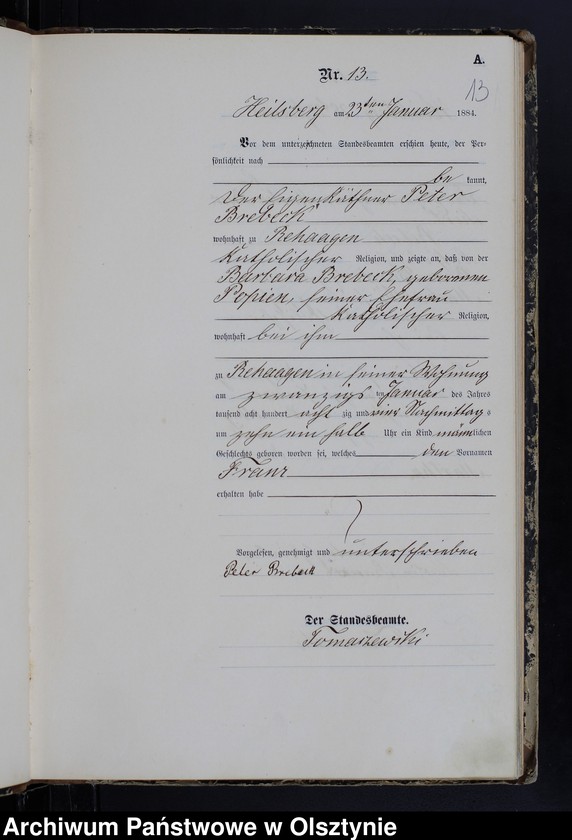 A.
Nr. 13.
13
Heilsberg am 23ten Januar 1884.
Vor dem unterzeichneten Standesbeamten erschien heute, der Per-
sönlichkeit nach
be kannt,
der Eigenkäthner Peter
Brebeck
wohnhaft zu Rehaagen
katholischer Religion, und zeigte an, daß von der
Barbara Brebeck, geborenen
Popien, seiner Ehefrau
katholischer Religion,
wohnhaft bei ihm
zu Rehaagen in seiner Wohnung
am zwanzigs ten Januar des Jahres
tausend acht hundert acht zig und vier Nachmittag s
um zehn ein halb Uhr ein Kind männlichen
Geschlechts geboren worden sei, welches den Vornamen
Franz
erhalten habe
Vorgelesen, genehmigt und unterschrieben
Peter Brebeck
Der Standesbeamte.
Tomaszewski
Archiwum Państwowe w Olsztynie